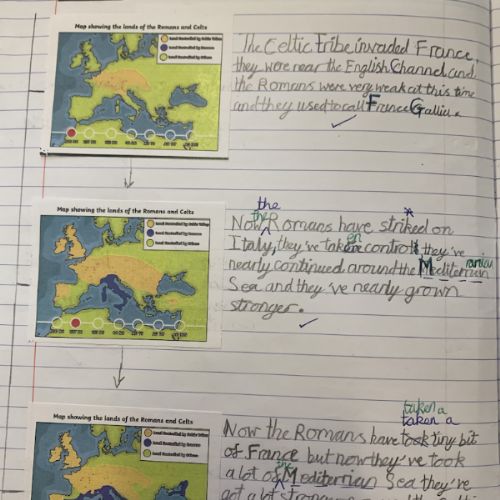 Map showing the lands of the Romans and Celts
Land Controlled by Celtic Tribes
Land Controlled by Romans
Land Controlled by Others
The Celtic tribe invaded France,
they were near the English Channel and
the Romans were very weak at this time
and they used to call France Gallia.
Map showing the lands of the Romans and Celts
Land Controlled by Celtic Tribes
Land Controlled by Romans
Land Controlled by Others
the
the
Now Romans have striked on
Italy, they've taken control, they've
nearly continued around the Mediterranian
Sea and they've nearly grown
stronger.
taken a
taken a
Map showing the lands of the Romans and Celts
Land Controlled by Celtic Tribes
Land Controlled by Romans
Land Controlled by Others
Now the Romans have took tiny bit
of France but now they've took
a lot of the Mediternian Sea they've